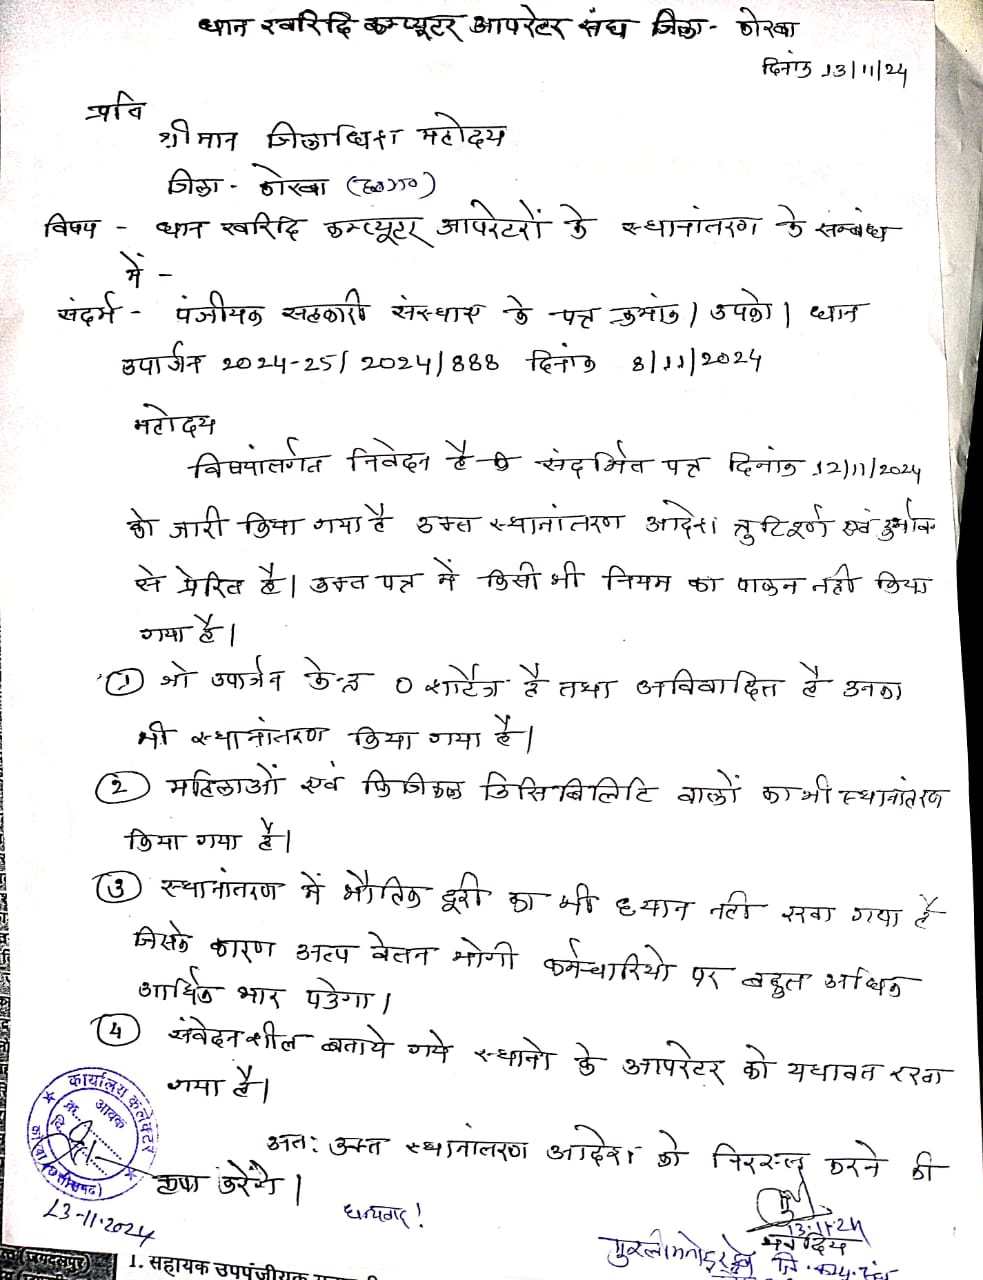 धान खरिदि कम्प्यूटर आपरेटर संघ जिला - कोरबा
दिनांक 13/11/24
प्रति
श्रीमान जिलाधिश महोदय
जिला - कोरबा (छ०ग०)
विषय - धान खरिदि कम्प्यूटर आपरेटरों के स्थानांतरण के संम्बंध
में -
संदर्भ - पंजीयक सहकारी संस्थाए के पत्र क्रमांक / उपको / धान
उपार्जन 2024-25/2024/888 दिनांक 8/11/2024
महोदय
विषयांतर्गत निवेदन है कि संदर्भित पत्र दिनांक 12/11/2024
को जारी किया गया है उक्त स्थानांतरण आदेश त्रुटिपूर्ण एवं
से प्रेरित है। उक्त पत्र में किसी भी नियम का पालन नही किया
गया है।
① जो उपार्जन केन्द्र 0 शार्टेज है तथा अविवादित है उनका
भी स्थानांतरण किया गया है।
② महिलाओं एवं फिजिकल डिसिबिलिटि वालों का भी स्थानांतरण
किया गया है।
③ स्थानांतरण में भौतिक दूरी का भी ध्यान नही रखा गया है
जिसके कारण अल्प वेतन भोगी कर्मचारियो पर बहुत अधिक
आर्थिक भार पड़ेगा।
④ संवेदनशील बताये गये स्थानो के आपरेटर को यथावत रखा
गया है।
अतः उक्त स्थानांतरण आदेश को निरस्त करने की
कृपा करेंगे।
धन्यवाद!
कार्यालय कलेक्टर
आवक
क्र.
दि.
कोरबा (छत्तीसगढ़)
13-11-2024
13.11.24
(जगदलपुर)
1. सहायक उपपंजीयक